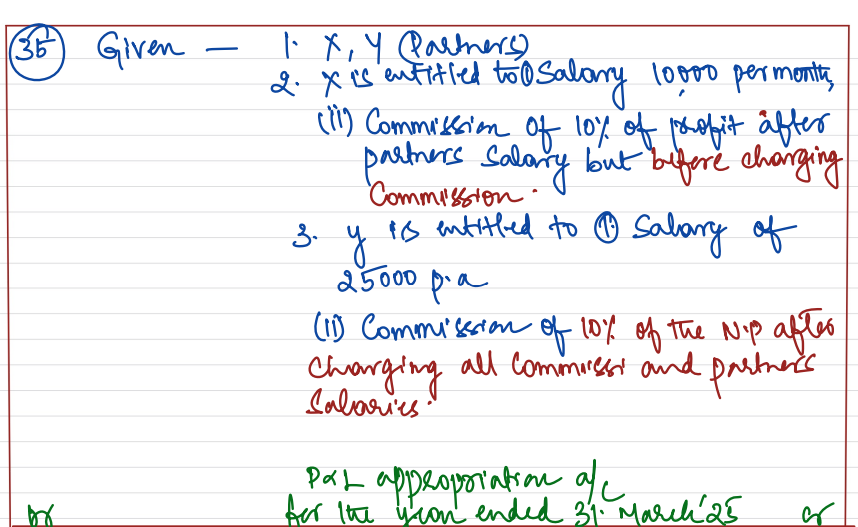 35 Given — 1. X, Y (Partners)
2. X is entitled to ① Salary 10,000 per month,
(ii) Commission of 10% of profit after
partners Salary but before charging
Commission.
3. Y is entitled to ① Salary of
25000 p.a
(ii) Commission of 10% of the N.P after
charging all Commissi and partners
Salaries.
P&L appropriation a/c
Dr for the year ended 31. March'25 cr